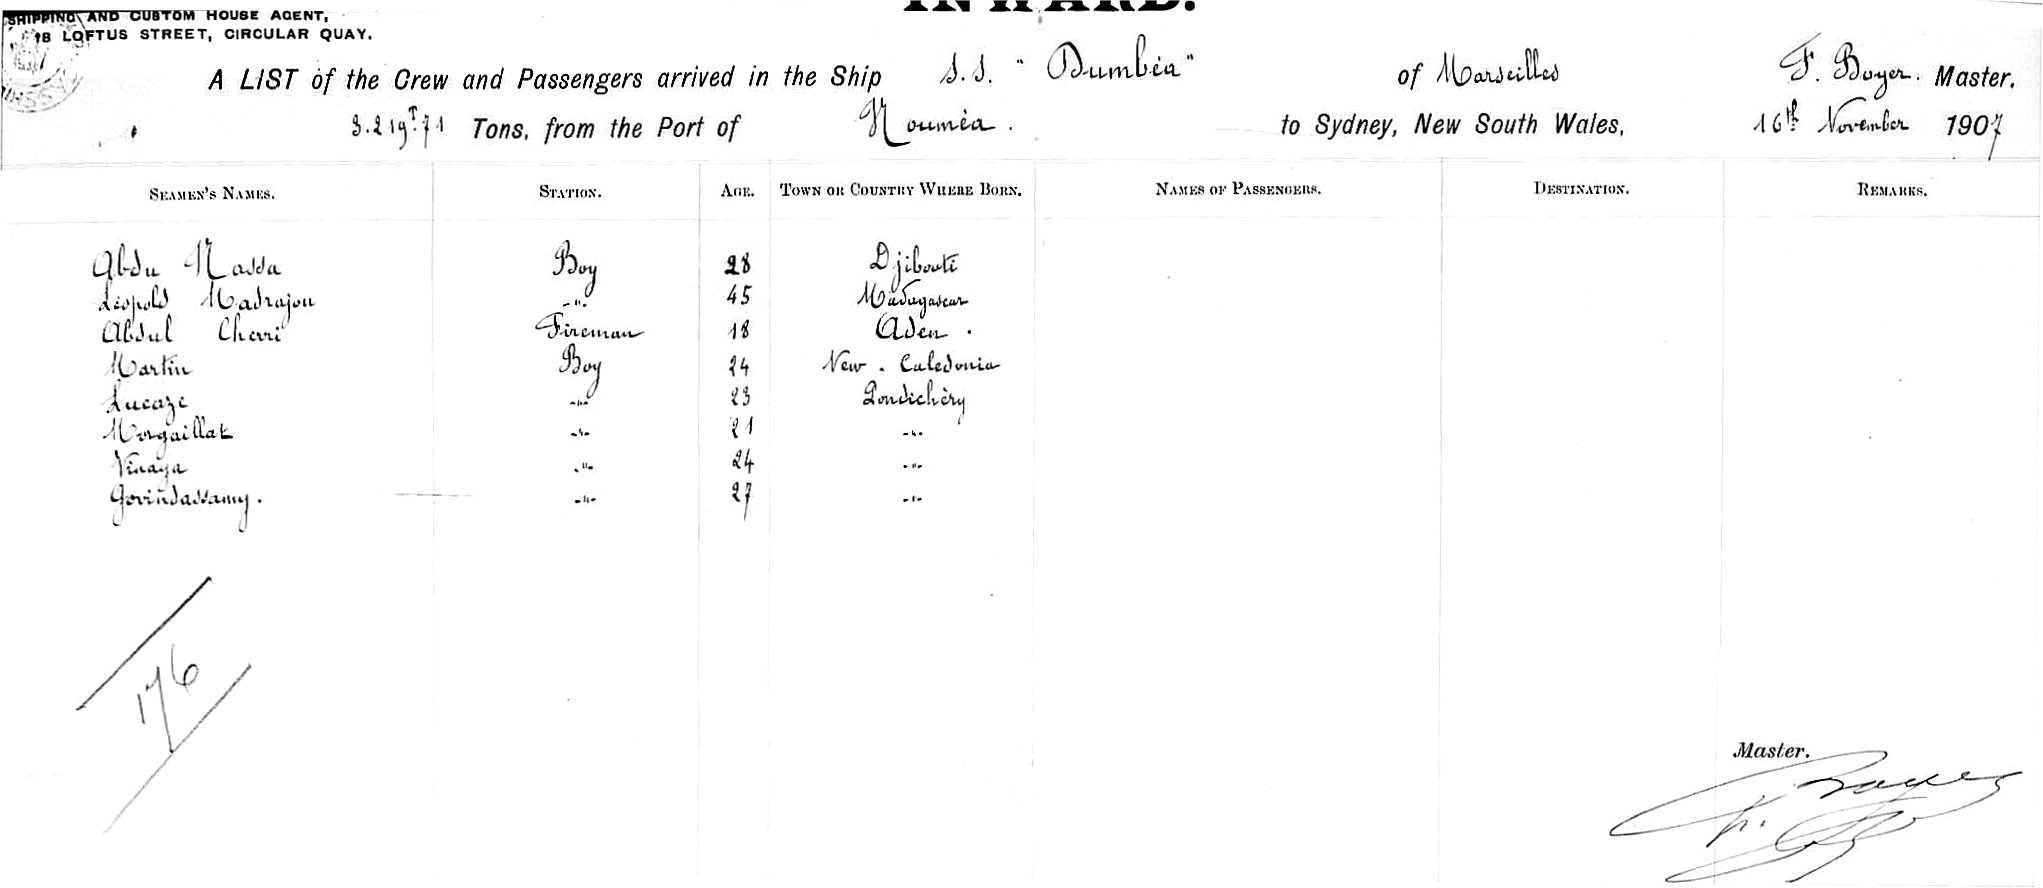 INWARD.
SHIPPING AND CUSTOM HOUSE AGENT,
LOFTUS STREET, CIRCULAR QUAY.
A LIST of the Crew and Passengers arrived in the Ship S.S. "Dumbéa" of Marseilles F. Boyer. Master.
3.219T.71 Tons, from the Port of Nouméa. to Sydney, New South Wales, 16th November 1907
SEAMEN'S NAMES. STATION. AGE. TOWN OR COUNTRY WHERE BORN. NAMES OF PASSENGERS. DESTINATION. REMARKS.
Abdu Nassa Boy 28 Djibouti
Léopold Madrajou -"- 45 Madagascar
Abdul Cherri Fireman 18 Aden.
Martin Boy 24 New. Caledonia
Lucaze -"- 23 Pondichéry
Morgaillat -"- 21 -"-
Vinaya -"- 24 -"-
Govindassamy. -"- 27 -"-
176
Master.
F. Boyer